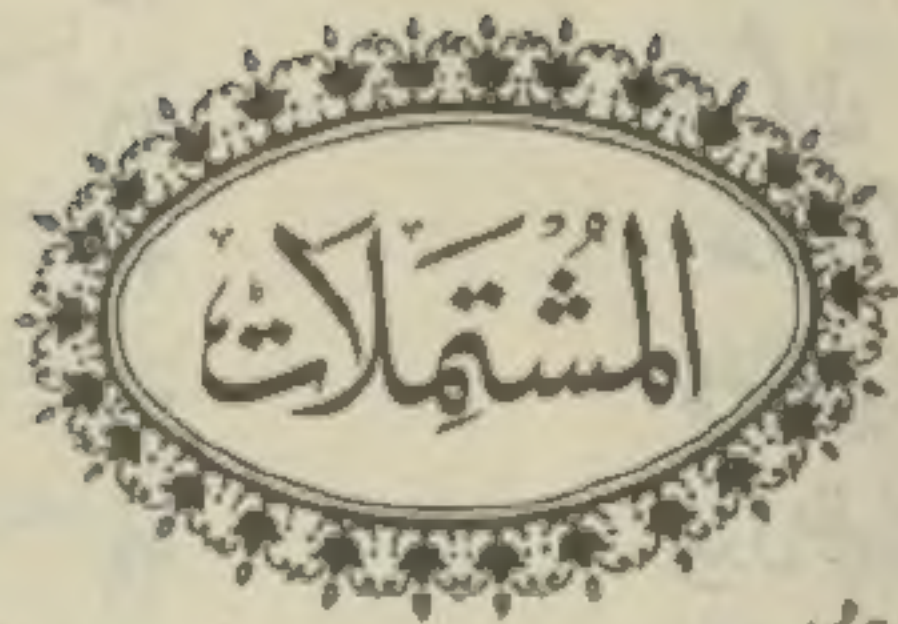 المُشتَمِلات